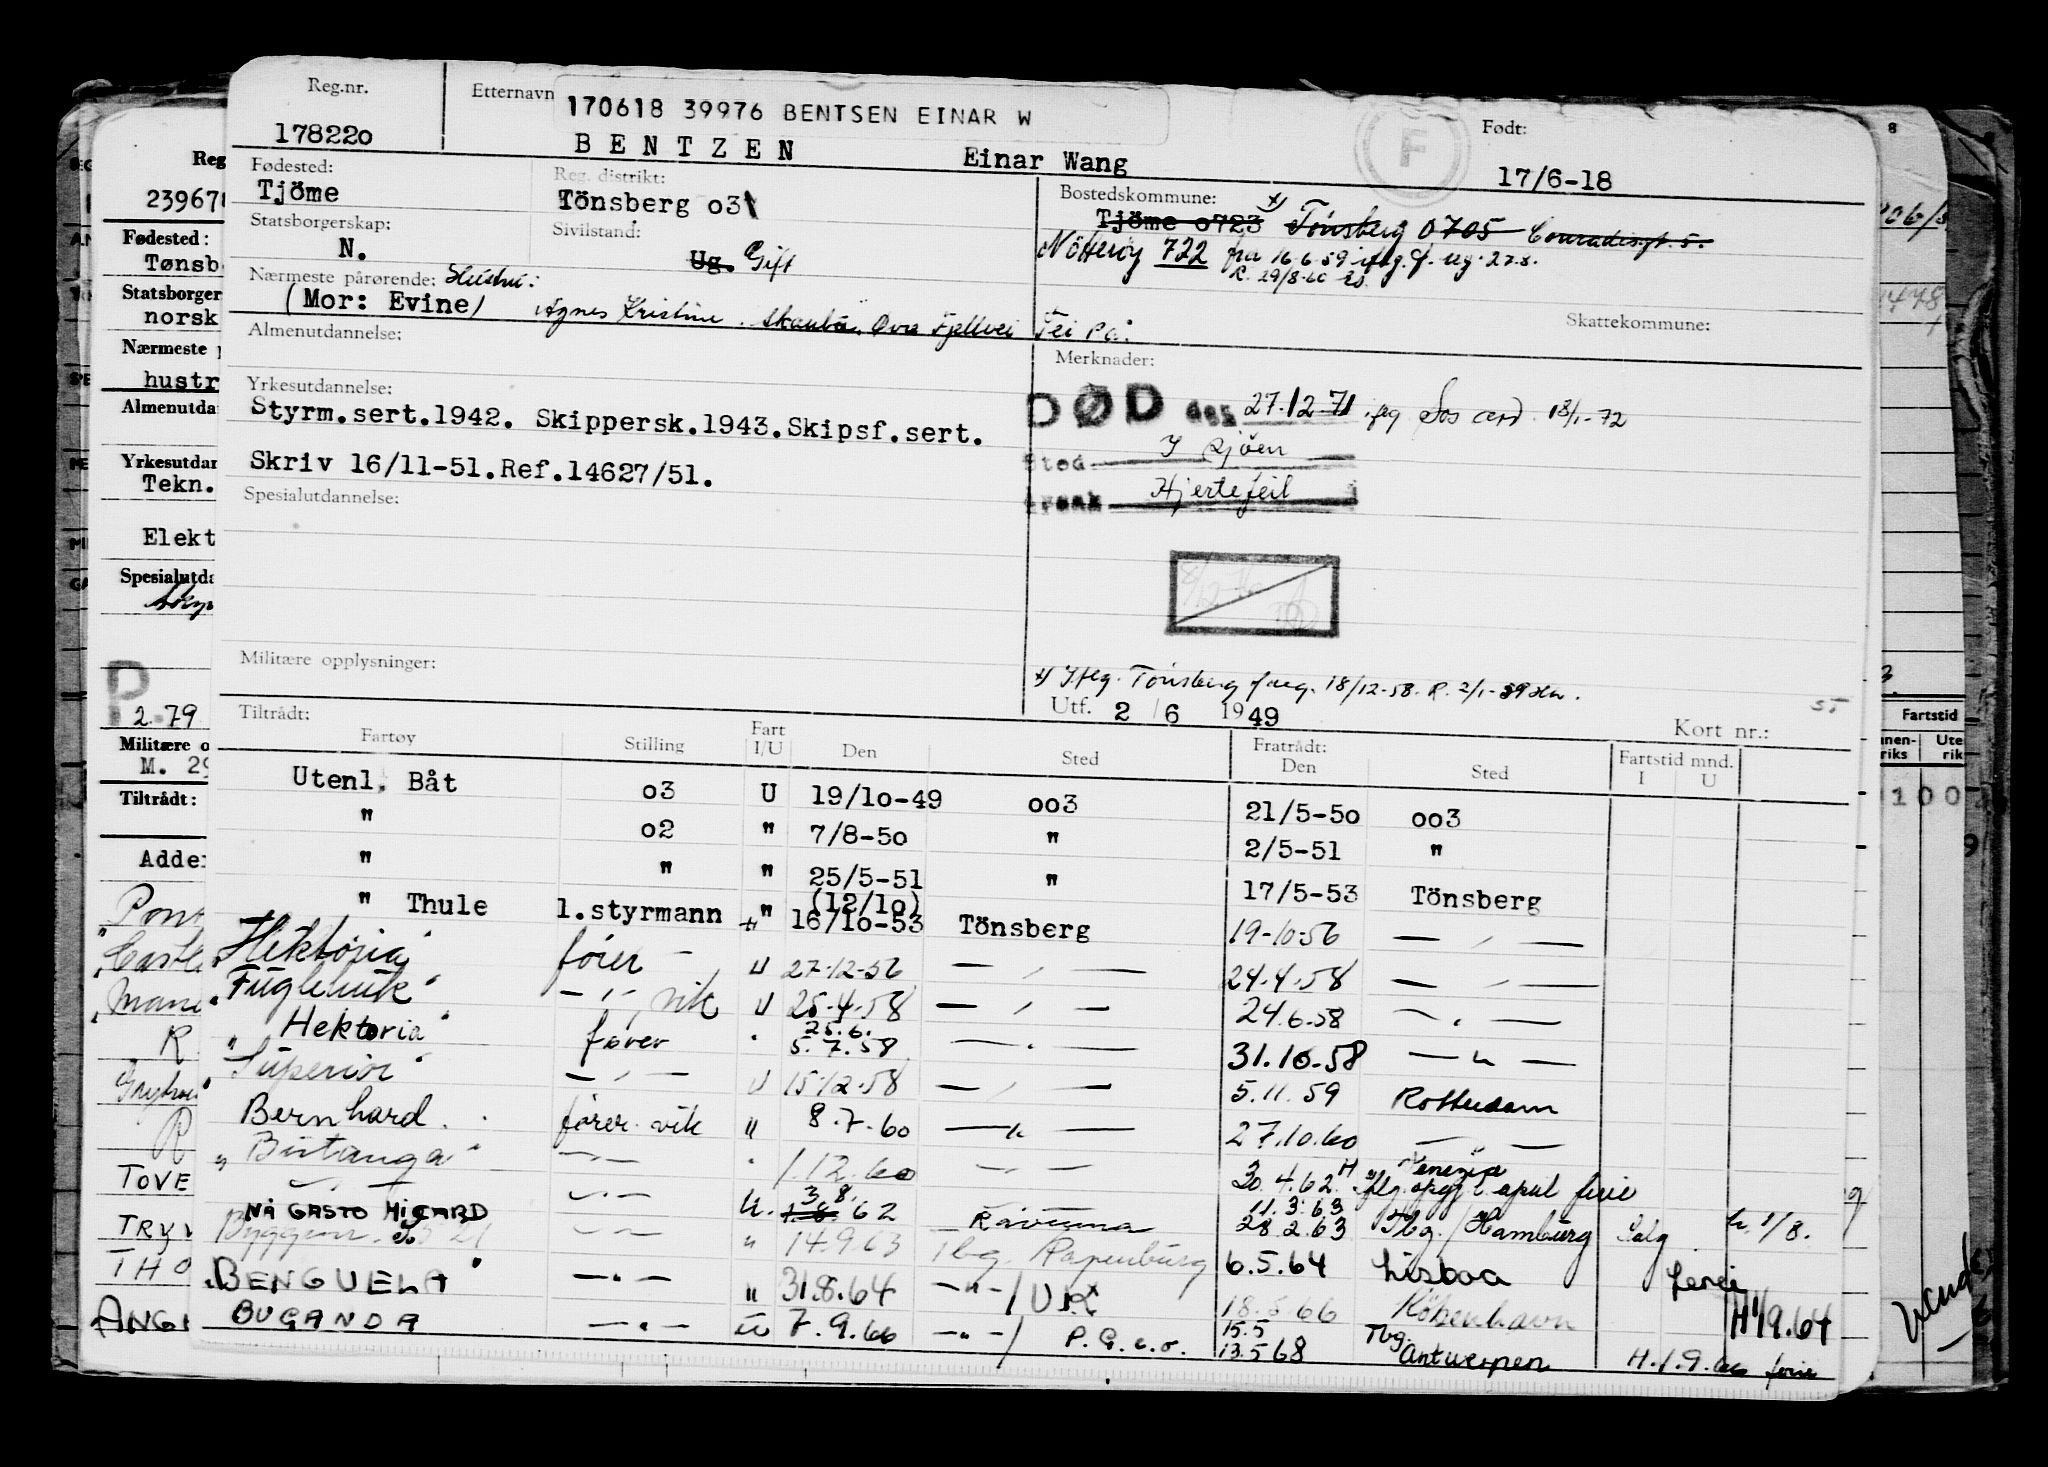 Reg.nr. Etternavn 170618 39976 BENTSEN EINAR W Født:
178220 BENTZEN Einar Wang F 17/6-18
Fødested: Reg. distrikt: Bostedskommune:
Tjöme Tönsberg 03 Tjöme 0723 x) Tönsberg 0705 Conradisgt. 5.
Statsborgerskap: Sivilstand:
N. Ug. Gift Nötteröy 722 fra 16.6.59 iflg. f. ug. 27.8.
R. 29/8-60
Nærmeste pårørende: Hustru:
(Mor: Evine) Agnes Kristine Øvre Fjellvei Tei Pa.
Almenutdannelse: Skattekommune:
Merknader:
Yrkesutdannelse:
Styrm.sert.1942. Skippersk.1943.Skipsf.sert. DØD den 27.12.71 iflg 18/1-72
Skriv 16/11-51.Ref.14627/51. Sted I Sjöen
Spesialutdannelse: Årsak Hjertefeil
Militære opplysninger: x) Iflg. Tönsberg 18/12-58. R. 2/1-59
Utf. 2/6 1949 Kort nr.:
Tiltrådt: Fratrådt:
Fartøy Stilling Fart I/U Den Sted Den Sted Fartstid mnd. I U
Utenl. Båt 03 U 19/10-49 003 21/5-50 003
" 02 " 7/8-50 " 2/5-51 "
" " " 25/5-51 " 17/5-53 Tönsberg
(12/10)
" Thule 1.styrmann " 16/10-53 Tönsberg 19-10-56 — " —
Hektoria fører U 27-12-56 — " — 24.4.58 — " —
"Fuglehuk" — " — vik U 25.4.58 — " — 24.6.58 — " —
25.6.
"Hektoria" fører " 5.7.58 — " — 31.10.58 — " —
"Superior" — " — U 15.12.58 — " — 5.11.59 Rotterdam
Bernhard fører vik " 8.7.60 — " — 27.10.60 — " —
"Bintanga" — " — " 1.12.60 — " — 30.4.62 Venezia ferie
— " — — " — U. 1.8. 3.8. 62 Ravenna 11.3.63 28.2.63 Tbg. / Hamburg Salg 1/8.
NÅ GASTO MICARD
— " — " 14.9.63 Tbg. Papenburg 6.5.64 Lisboa ferie
"BENGUELA" — " — " 31.8.64 — " — / UK 18.5.66 København H 1/9.64
BUGANDA — " — U 7.9.66 — " — / P.G. 15.5 13.5 68 Tbg. Antwerpen H. 1.9. ferie
Reg
23967
Fødested:
Tønsb
Statsborger
norsk
Nærmeste
hustr
Almenutda
Yrkesutdan
Tekn.
Elekt
Spesialutda
P
2.79
Militære o
M. 29
Tiltrådt:
Adde
Pon
"Castl
"Mane
R
R
TOVE
TRYV
THO
ANG
8
Fartstid
Ute
riks rik
100